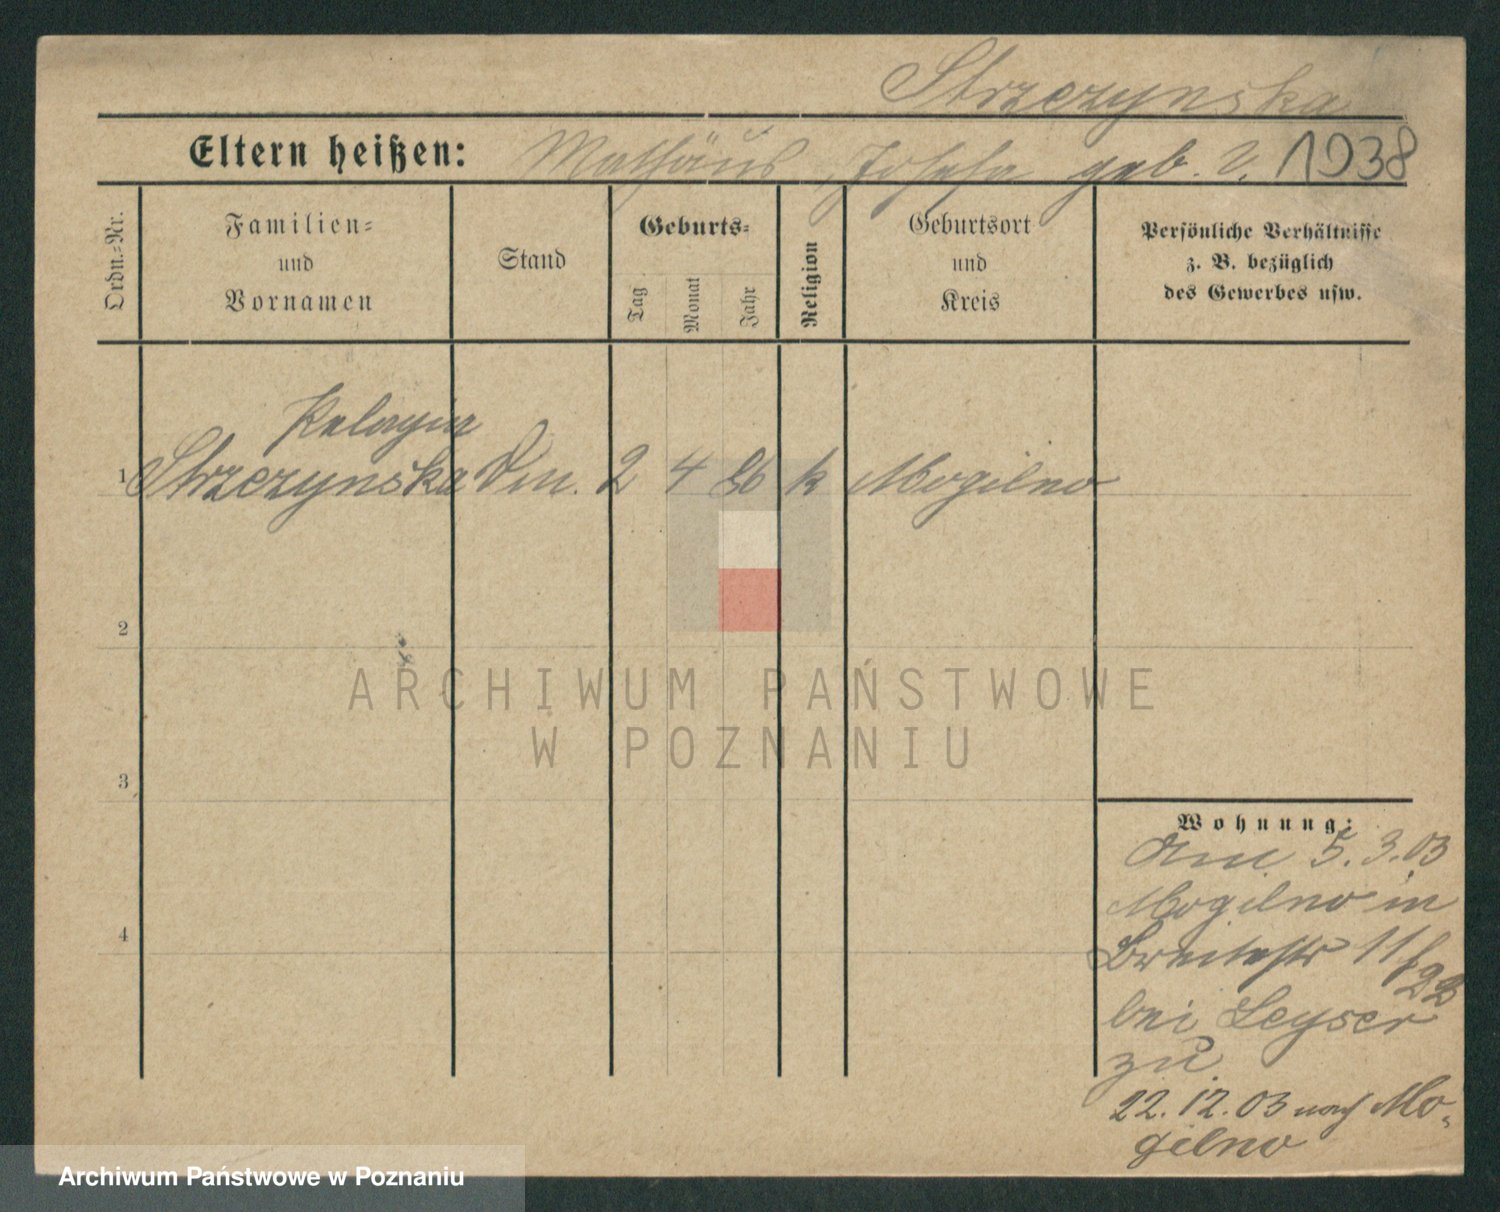 Strzezynska
Eltern heißen: Mathäus, Josefa geb. V. 1938
Ordn.-Nr.
Familien-
und
Vornamen
Stand
Geburts-
Tag
Monat
Jahr
Religion
Geburtsort
und
Kreis
Persönliche Verhältnisse
z. B. bezüglich
des Gewerbes usw.
Pelagia
1 Strzezynska Dm. 2 4 86 k Mogilno
2
3
4
ARCHIWUM PAŃSTWOWE
W POZNANIU
Wohnung:
Am 5.3.03
Mogilno in
Breitestr 11/22
bei Leyser
zu
22.12.03 nach Mo-
gilno
Archiwum Państwowe w Poznaniu